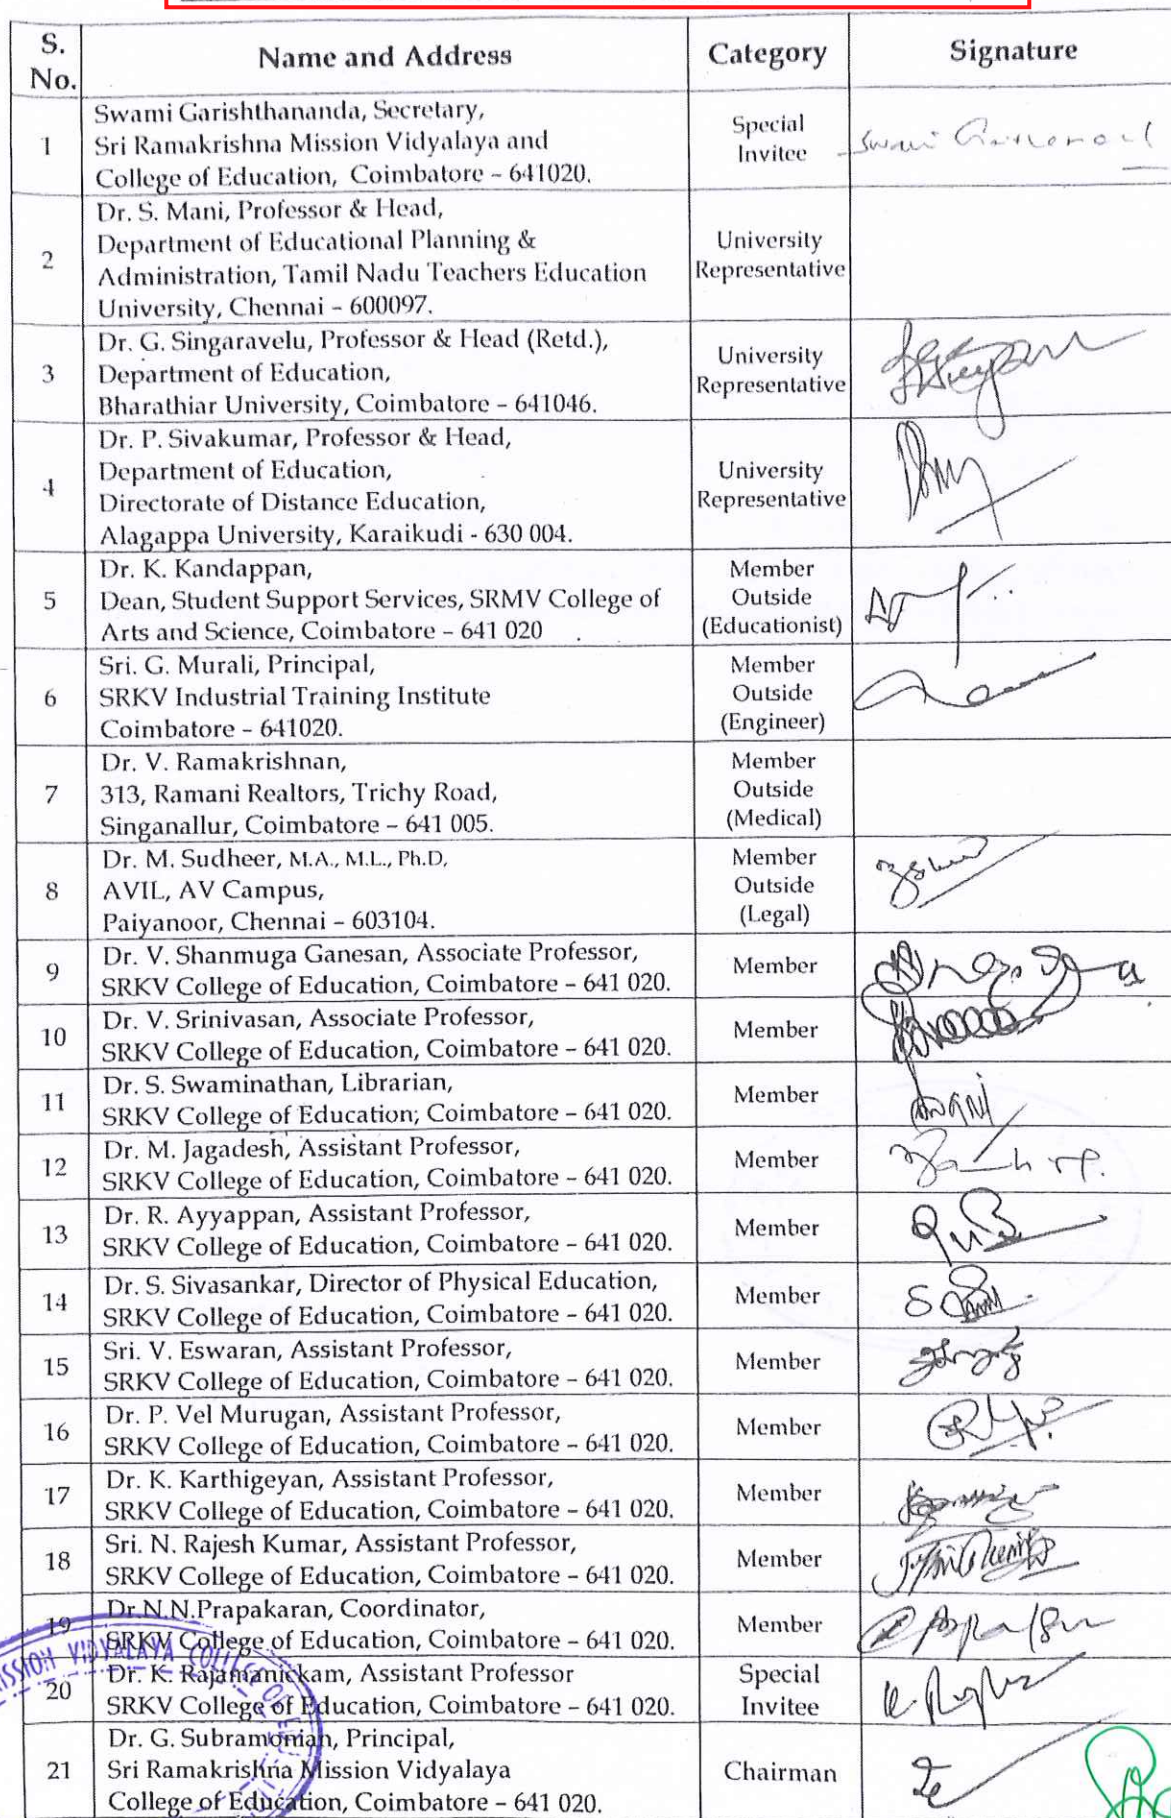 S. No. Name and Address Category Signature
1 Swami Garishthananda, Secretary,
Sri Ramakrishna Mission Vidyalaya and
College of Education, Coimbatore – 641020.
Special
Invitee
Swami
2 Dr. S. Mani, Professor & Head,
Department of Educational Planning &
Administration, Tamil Nadu Teachers Education
University, Chennai – 600097.
University
Representative
3 Dr. G. Singaravelu, Professor & Head (Retd.),
Department of Education,
Bharathiar University, Coimbatore – 641046.
University
Representative
4 Dr. P. Sivakumar, Professor & Head,
Department of Education,
Directorate of Distance Education,
Alagappa University, Karaikudi - 630 004.
University
Representative
5 Dr. K. Kandappan,
Dean, Student Support Services, SRMV College of
Arts and Science, Coimbatore – 641 020
Member
Outside
(Educationist)
6 Sri. G. Murali, Principal,
SRKV Industrial Training Institute
Coimbatore – 641020.
Member
Outside
(Engineer)
7 Dr. V. Ramakrishnan,
313, Ramani Realtors, Trichy Road,
Singanallur, Coimbatore – 641 005.
Member
Outside
(Medical)
8 Dr. M. Sudheer, M.A., M.L., Ph.D,
AVIL, AV Campus,
Paiyanoor, Chennai – 603104.
Member
Outside
(Legal)
9 Dr. V. Shanmuga Ganesan, Associate Professor,
SRKV College of Education, Coimbatore – 641 020.
Member
10 Dr. V. Srinivasan, Associate Professor,
SRKV College of Education, Coimbatore – 641 020.
Member
11 Dr. S. Swaminathan, Librarian,
SRKV College of Education; Coimbatore – 641 020.
Member
12 Dr. M. Jagadesh, Assistant Professor,
SRKV College of Education, Coimbatore – 641 020.
Member
13 Dr. R. Ayyappan, Assistant Professor,
SRKV College of Education, Coimbatore – 641 020.
Member
14 Dr. S. Sivasankar, Director of Physical Education,
SRKV College of Education, Coimbatore – 641 020.
Member
15 Sri. V. Eswaran, Assistant Professor,
SRKV College of Education, Coimbatore – 641 020.
Member
16 Dr. P. Vel Murugan, Assistant Professor,
SRKV College of Education, Coimbatore – 641 020.
Member
17 Dr. K. Karthigeyan, Assistant Professor,
SRKV College of Education, Coimbatore – 641 020.
Member
18 Sri. N. Rajesh Kumar, Assistant Professor,
SRKV College of Education, Coimbatore – 641 020.
Member
19 Dr.N.N.Prapakaran, Coordinator,
SRKV College of Education, Coimbatore – 641 020.
Member
20 Dr. K. Rajamanickam, Assistant Professor
SRKV College of Education, Coimbatore – 641 020.
Special
Invitee
21 Dr. G. Subramonian, Principal,
Sri Ramakrishna Mission Vidyalaya
College of Education, Coimbatore – 641 020.
Chairman
MISSION VIDYALAYA COLLEGE OF